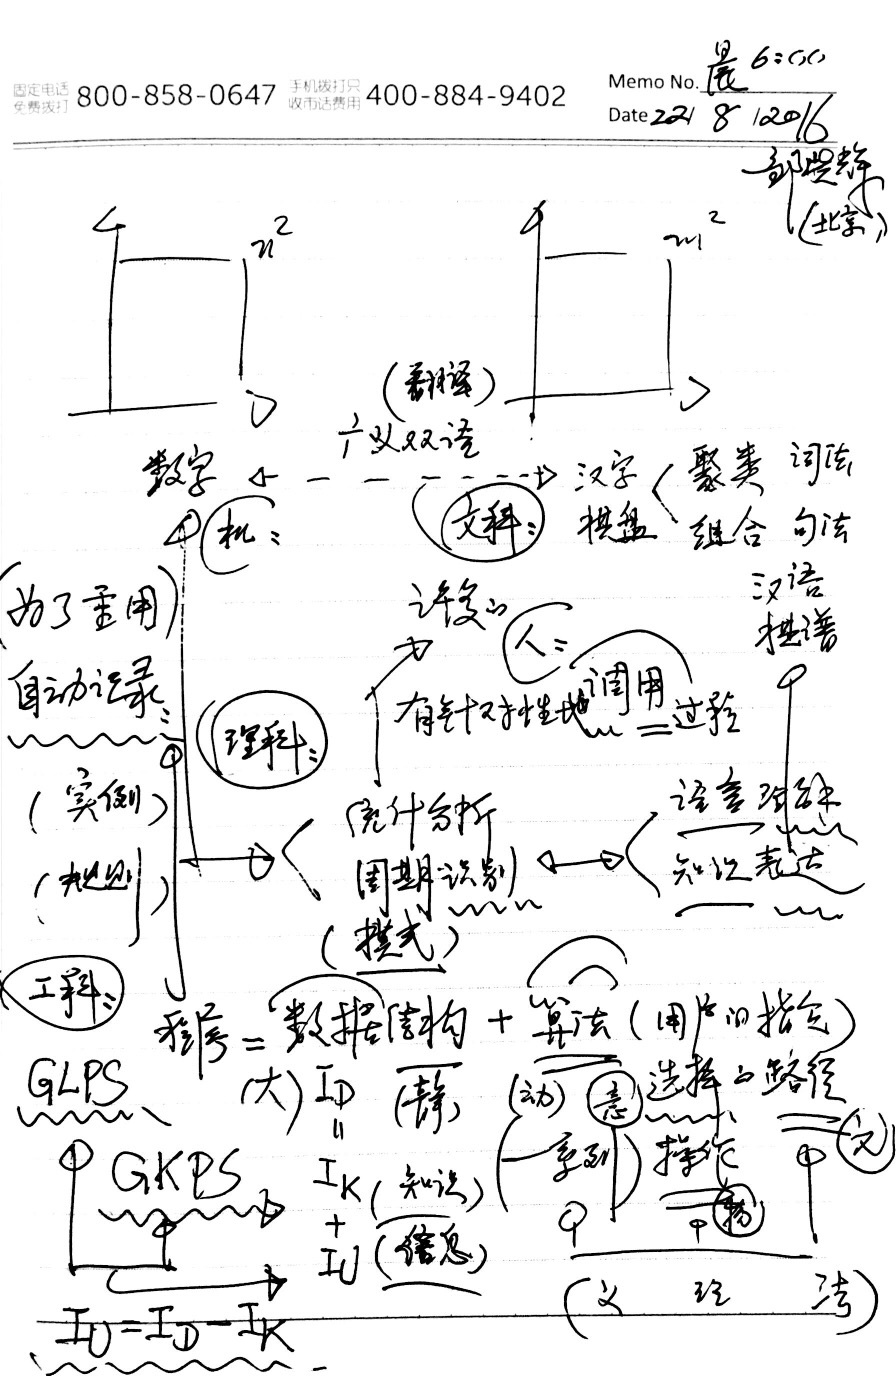 固定电话
免费拨打 800-858-0647 手机拨打只
收市话费用 400-884-9402
Memo No. 晨 6:00
Date 22/ 8 /2016
(北京)
n² m²
(翻译)
双语
数字 汉字 聚类 词法
机: 文科: 棋盘 组合 句法
汉语
棋谱
(为了重用) 许多的 人:
自动记录:
有针对性地调用 过程
理科:
(实例) 统计分析 语言理解
(规则) 周期识别 知识表达
(模式)
工科:
程序 = 数据结构 + 算法 (用户的指定)
GLPS (大) I_D (静) (动) 意 选择的路径
= (一系列) 操作 文
GKPS I_K (知识)
+
I_U (信息)
(义 理 法)
I_U = I_D - I_K